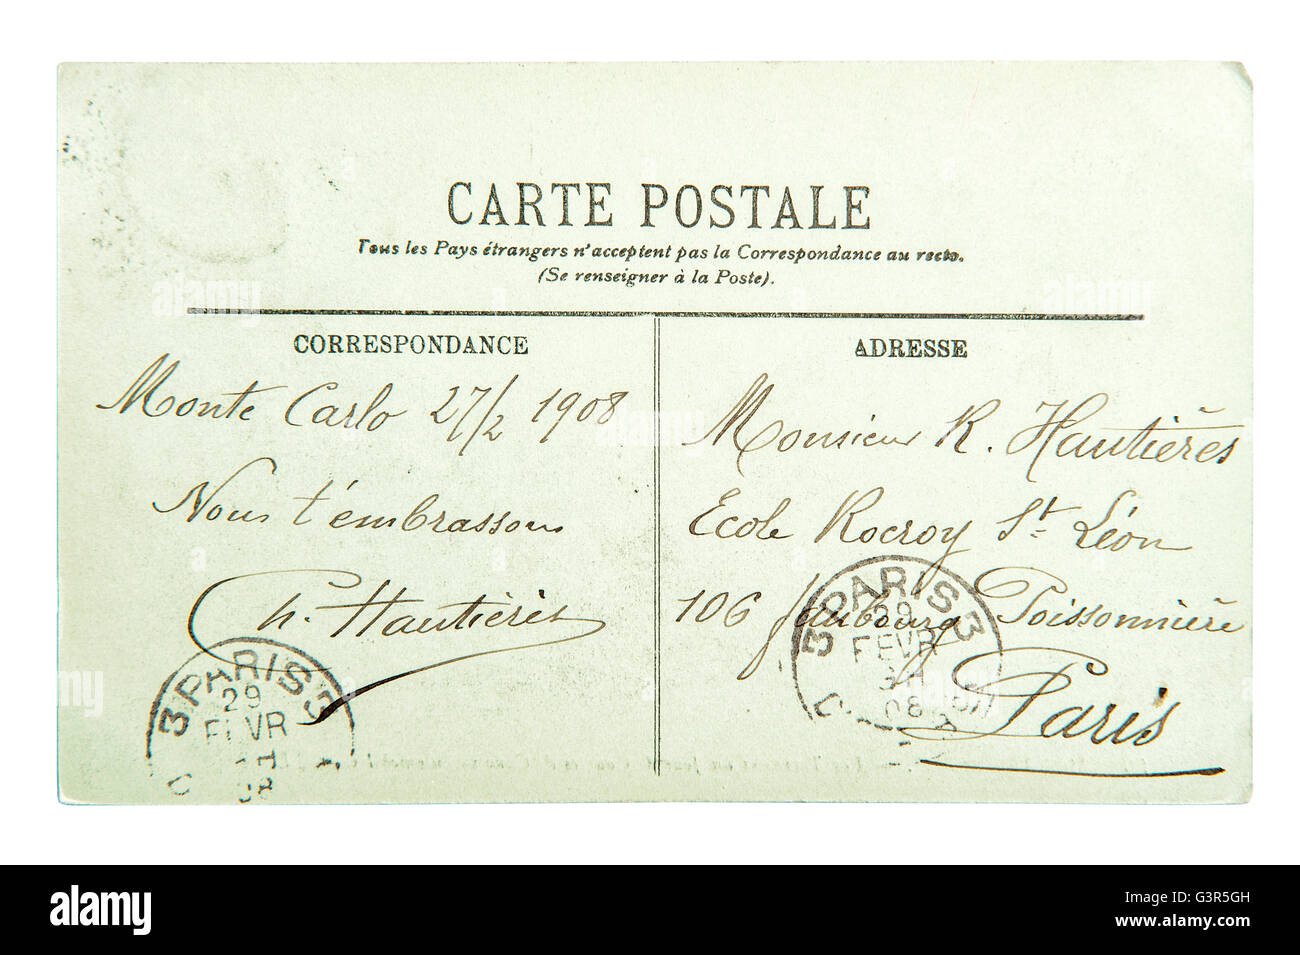 CARTE POSTALE
Tous les Pays étrangers n'acceptent pas la Correspondance au recto.
(Se renseigner à la Poste).
CORRESPONDANCE
Monte Carlo 27/2 1908
Nous t'embrassons
Ch. Hautières
3 PARIS 3
29
FEVR
08
ADRESSE
Monsieur R. Hautières
Ecole Rocroy St Léon
106 faubourg Poissonnière
Paris
3 PARIS 3
29
FEVR
08
alamy
Image ID: G3R5GH
www.alamy.com